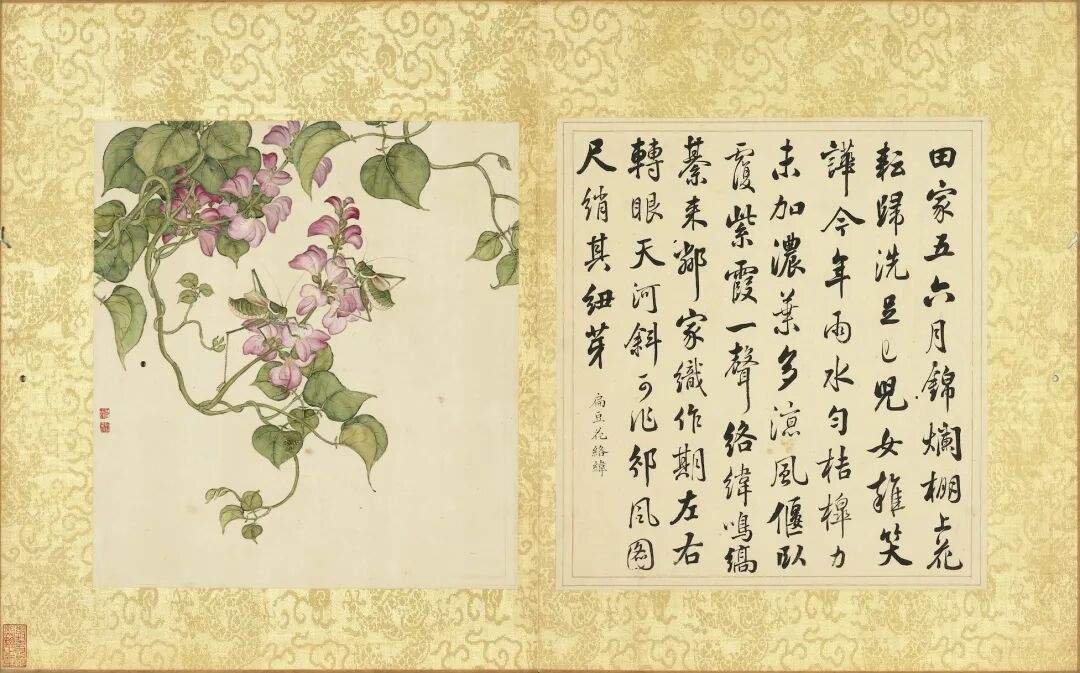 田家五六月錦爛棚上花
耘歸洗足已兒女雜笑
譁今年雨水勻桔槔力
未加濃葉多涼風偃臥
覆紫霞一聲絡緯鳴縞
綦來鄰家織作期左右
轉眼天河斜可作邠風圖
尺綃其芽
扁豆花絡緯